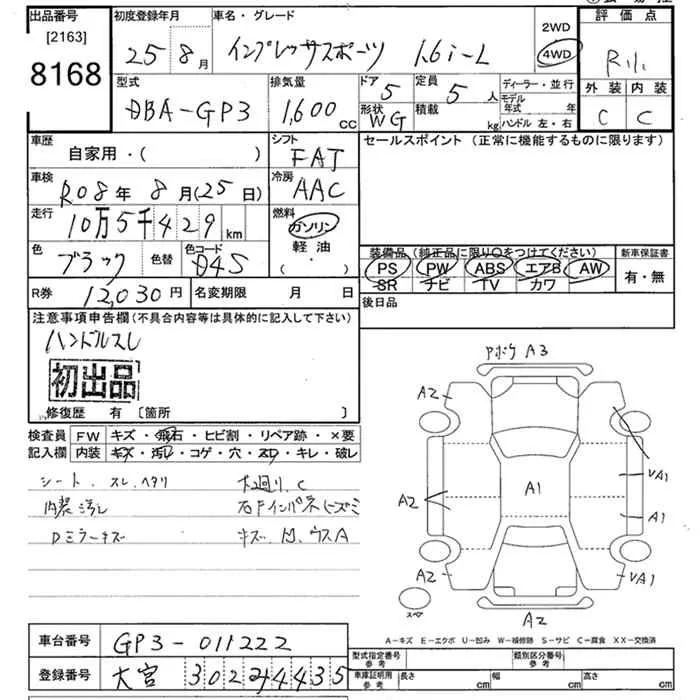 出品番号
[2163]
8168
初度登録年月
25年 8月
車名・グレード
インプレッサスポーツ 1.6i-L
2WD
4WD
評価点
R
外装 内装
C C
型式
DBA-GP3
排気量
1,600 cc
ドア
5
定員
5 人
形状
WG
積載
kg
ディーラー・並行
モデル年式 年
ハンドル 左・右
車歴
自家用・( )
シフト
FAT
セールスポイント (正常に機能するものに限ります)
車検
R08年 8月(25日)
冷房
AAC
走行
10万5千429 km
燃料
ガソリン
軽油
( ・ )
色
ブラック
色替
色コード
D4S
装備品 (純正品に限り○をつけてください)
PS PW ABS エアB AW
SR ナビ TV カワ
新車保証書
有・無
R券
12,030円
名変期限 月 日
後日品
注意事項申告欄(不具合内容等は具体的に記入して下さい)
ハンドルスレ
初出品
修復歴 有 〔箇所 〕
検査員記入欄
FW キズ・飛石・ヒビ割・リペア跡・×要
内装 キズ・汚レ・コゲ・穴・スレ・キレ・破レ
シート.スレ.ヘタリ
内装汚レ
Dミラーキズ
下廻り.C
右Fインパネ
キズ. ウスA
A3
A2
A1
A2
VA1
A1
A2
VA1
スペア
A2
A-キズ E-エクボ U-凹み W-補修跡 S-サビ C-腐食 XX-交換済
車台番号
GP3-011222
登録番号
大宮 302 4435
型式指定番号
参考
類別区分番号
参考
車庫証明用
参考
長さ cm
幅 cm
高さ cm